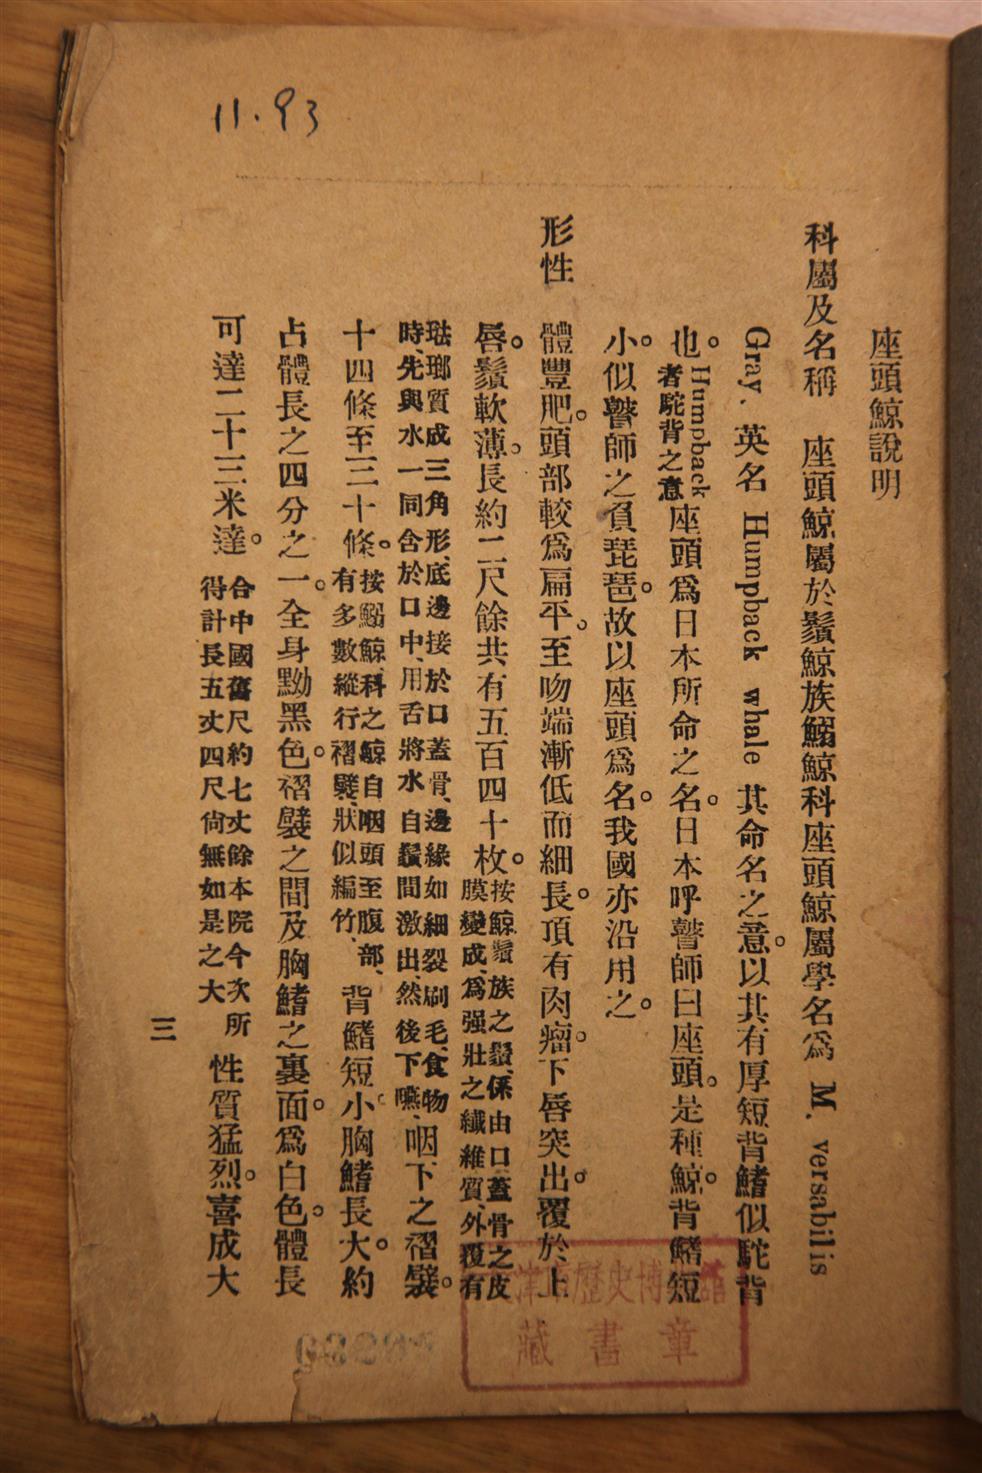 11.93
座頭鯨說明
科屬及名稱　座頭鯨屬於鬚鯨族鰮鯨科座頭鯨屬學名爲 M. versabilis
Gray. 英名 Humpback whale 其命名之意。以其有厚短背鰭似駝背
也。Humpback者駝背之意 座頭爲日本所命之名。日本呼瞽師曰座頭。是種鯨。背鰭短
小。似瞽師之負琵琶。故以座頭爲名。我國亦沿用之。
形性　體豐肥。頭部較爲扁平。至吻端漸低而細長。頂有肉瘤。下唇突出。覆於上
唇。鬚軟薄。長約二尺餘共有五百四十枚。按鯨鬚族之鬚、係由口蓋骨之皮膜變成、爲强壯之纖維質、外覆有
琺瑯質成三角形、底邊接於口蓋骨、邊緣如細裂刷毛、食物時、先與水一同含於口中、用舌將水自鬚間激出、然後下嚥、咽下之褶襞。
十四條至三十條。按鰮鯨科之鯨自咽頭至腹部、有多數縱行褶襞、狀似編竹、背鰭短小。胸鰭長大。約
占體長之四分之一。全身黝黑色。褶襞之間及胸鰭之裏面。爲白色。體長
可達二十三米達。合中國舊尺約七丈餘本院今次所得計長五丈四尺尙無如是之大 性質猛烈。喜成大
三
津市歷史博物館
藏書章